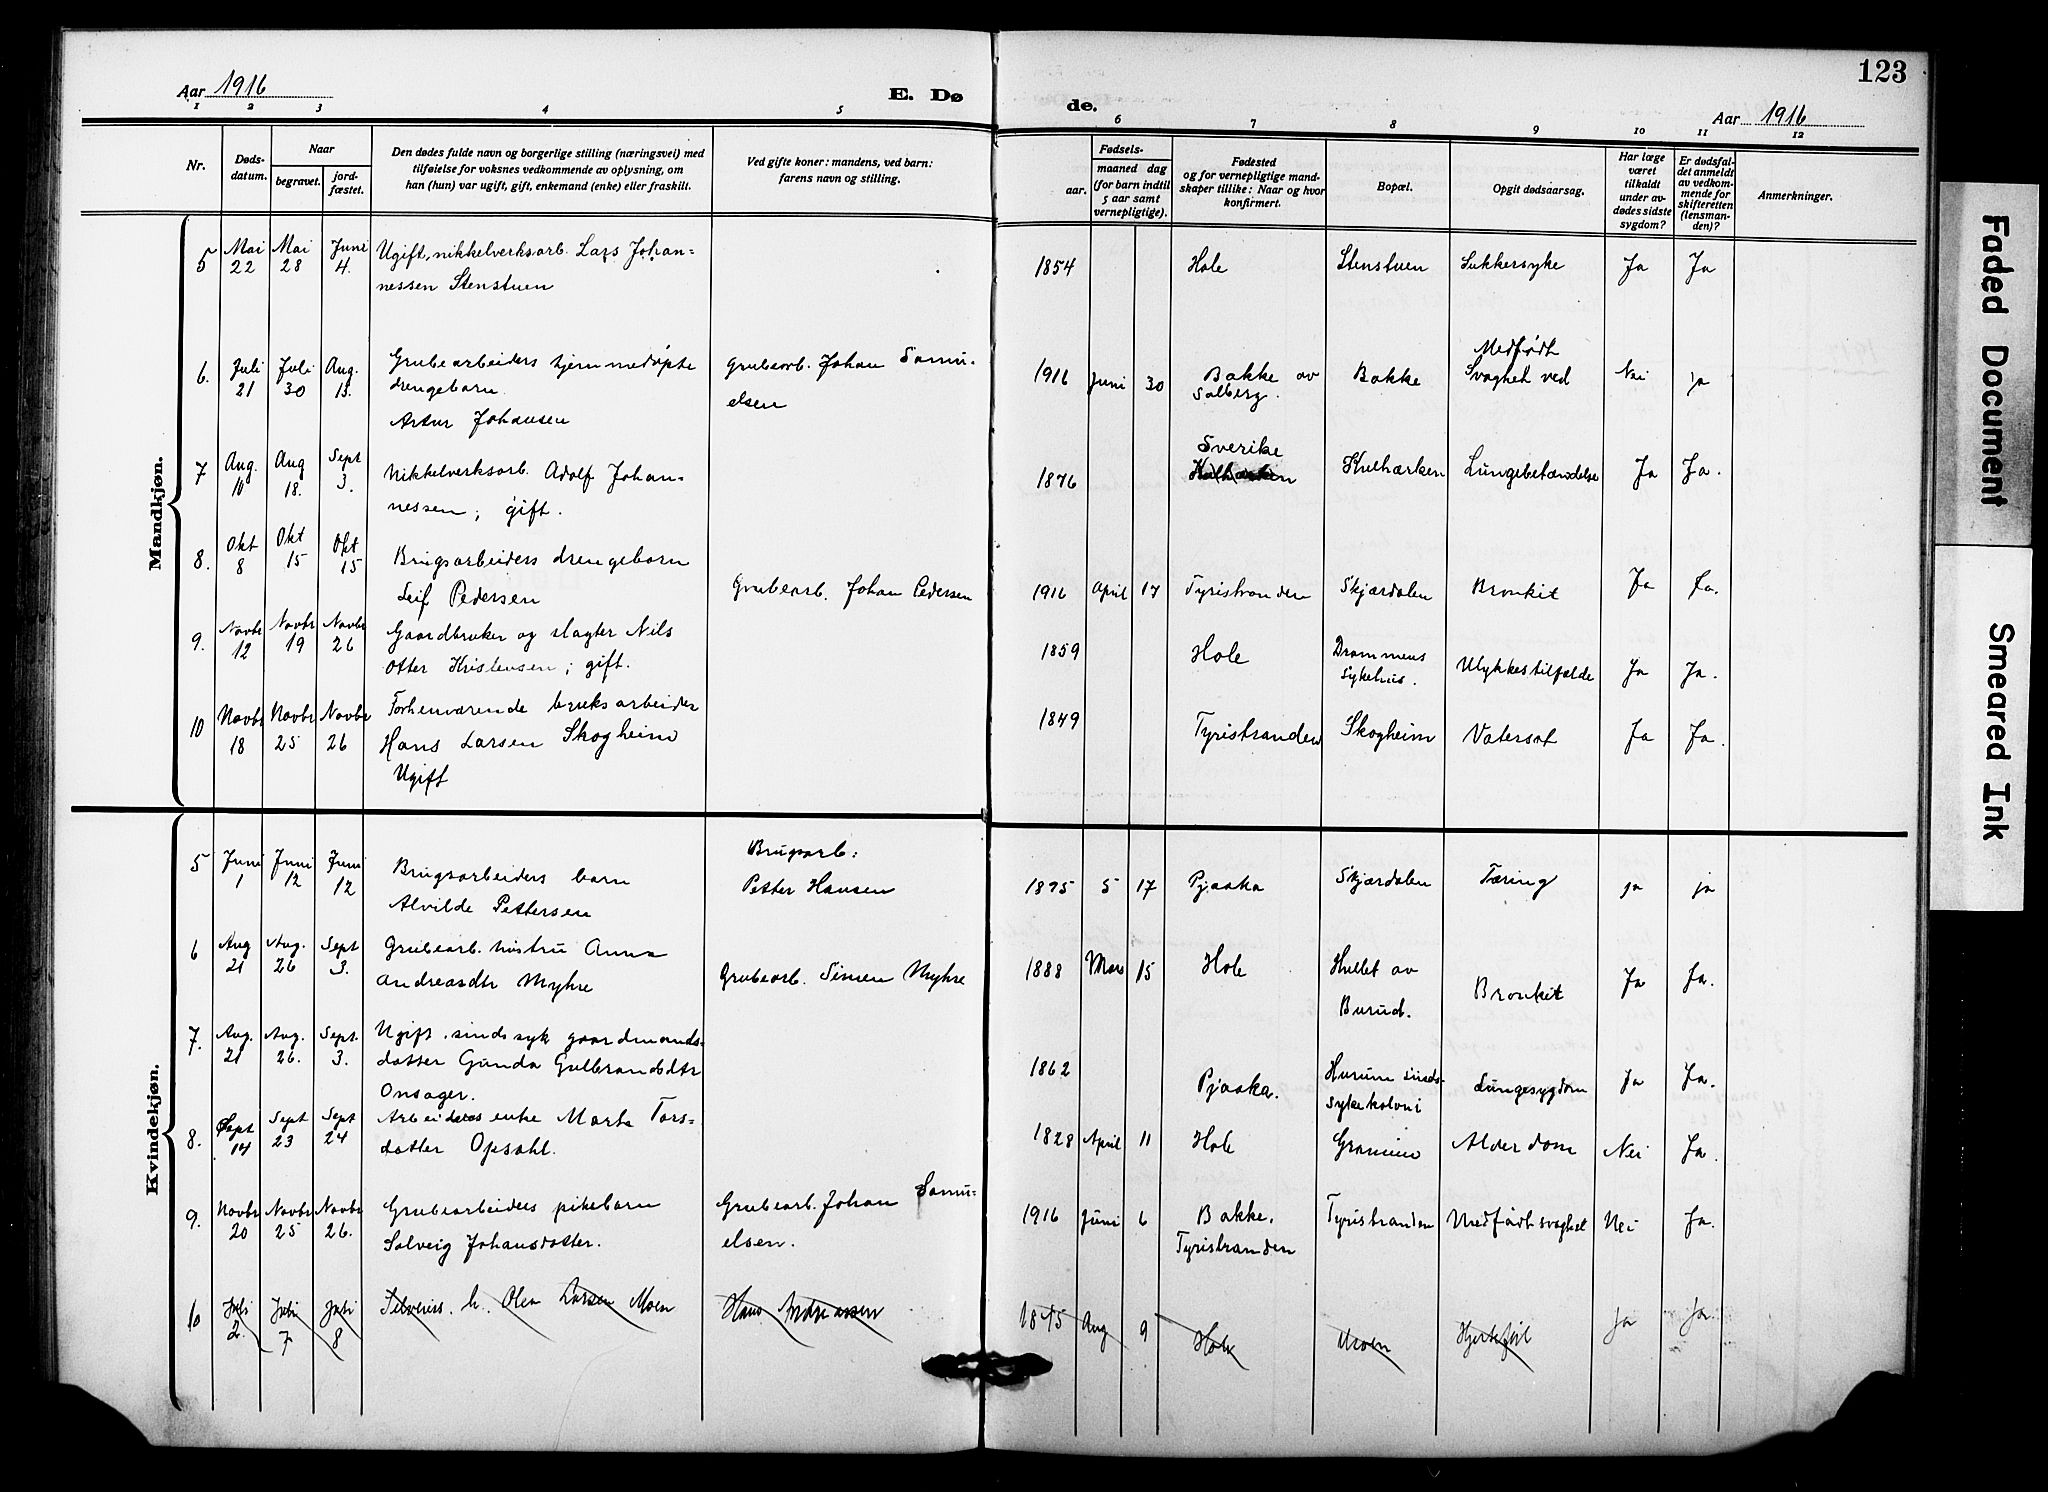 123
Aar 1916
E. Døde.
Aar 1916
1 2 3 4 5 6 7 8 9 10 11 12
Nr.
Døds-
datum.
Naar
begravet.
jord-
fæstet.
Den dødes fulde navn og borgerlige stilling (næringsvei) med
tilføielse for voksnes vedkommende av oplysning, om
han (hun) var ugift, gift, enkemand (enke) eller fraskilt.
Ved gifte koner: mandens, ved barn:
farens navn og stilling.
Fødsels-
aar.
maaned dag
(for barn indtil
5 aar samt
vernepligtige).
Fødested
og for vernepligtige mand-
skaper tillike: Naar og hvor
konfirmert.
Bopæl.
Opgit dødsaarsag.
Har læge
været
tilkaldt
under av-
dødes sidste
sygdom?
Er dødsfal-
det anmeldt
av vedkom-
mende for
skifteretten
(lensman-
den)?
Anmerkninger.
Mandkjøn.
5 Mai 22 Mai 28 Juni 4. Ugift, nikkelverksarb. Lars Johan-
nessen Stenstuen
1854 Hole Stenstuen Sukkersyke Ja Ja
6. Juli 21 Juli 30 Aug. 13. Grubearbeiders hjemmedøpte
drengebarn.
Artur Johansen
Grubearb. Johan Samu-
elsen
1916 Juni 30 Bakke av
Solberg.
Bakke
Medfødt
Svaghet ved
Nei ja
7 Aug. 10 Aug 18. Sept 3. Nikkelverksarb. Adolf Johan-
nessen; gift.
1876 Sverike
Lungebetændelse Ja Ja.
8. Okt 8 Okt 15 Okt 15 Brugsarbeiders drengebarn
Leif Pedersen
Grubearb. Johan Pedersen
1916 April 17 Tyristranden Skjærdalen Bronkit Ja Ja.
9. Novbr 12 Novbr 19 Novbr 26 Gaardbruker og slagter Nils
Otter Kristensen; gift.
1859 Hole Drammens
Sykehus.
Ulykkestilfælde Ja Ja.
10 Novbr 18 Novbr 25 Novbr 26 Forhenværende bruksarbeider
Hans Larsen Skogheim
Ugift
1849 Tyristranden Skogheim Vatersot Ja Ja.
Kvindekjøn.
5 Juni 1 Juni 12 Juni 12 Brugsarbeiders barn
Alvilde Pettersen
Brugsarb:
Petter Hansen
1895 5 17 Pjaaka Skjærdalen Tæring ja ja
6 Aug 21 Aug. 26 Sept 3. Grubearb. hustru Anna
Andreasdtr Myhre
Grubearb. Simen Myhre
1888 Mars 15 Hole Hullet av
Burud.
Bronkit Ja Ja.
7. Aug. 21 Aug. 26. Sept. 3. Ugift, sindssyk gaardmands-
datter Gunda Gulbrandsdtr
Onsager.
1862 Pjaaka. Hurum sinds-
sykekoloni
Lungesygdom Ja Ja.
8. Sept 14 Sept 23 Sept 24 Arbeiders enke Marte Tors-
datter Opsahl.
1828 April 11 Hole Alderdom Nei Ja.
9. Novbr 20 Novbr 25 Novbr 26. Grubearbeiders pikebarn
Solveig Johansdatter.
Grubearb. Johan Samu-
elsen.
1916 Juni 6 Bakke,
Tyristranden
Tyristranden Medfødt svaghet Nei Ja.
10 Juli 2. Juli 7 Juli 8 h. Olea Larsen Moen
Hans Andreassen
1845 Aug 9 Hole Moen Hjertefeil Ja Ja.
Faded Document
Smeared Ink